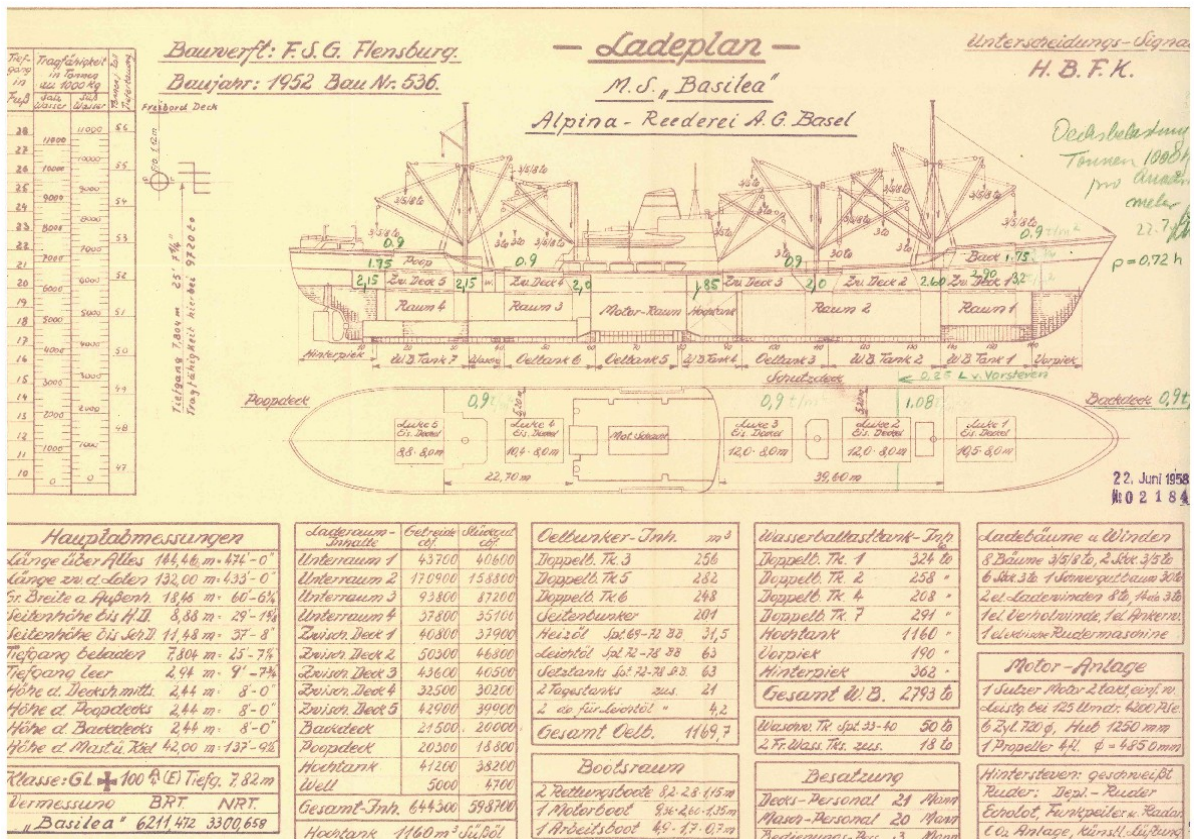 Bauwerft: F.S.G. Flensburg.
Baujahr: 1952 Bau Nr. 536.
— Ladeplan —
M.S. „Basilea"
Alpina - Reederei A.G. Basel
Unterscheidungs-Signa
H.B.F.K.
Tragfähigkeit
in Tonnen
zu 1000 kg
Freibord Deck
Tiefgang 7,804 m 25' 7¼"
Tragfähigkeit hierbei 9720 to
Tonnen 1000 k
pro
meter
p=0.72 h
1.75 Poop
0.9
0.9
0.9
Back 1.75
2,15 Zw. Deck 5 2,15
2,0
1,85 Zw. Deck 3 2,0
Zw. Deck 2 2.60
Zw. Deck 1
Raum 4
Raum 3
Motor-Raum
Hochtank
Raum 2
Raum 1
Hinterpiek
W.B. Tank 7
Oeltank 6
Oeltank 5
W.B. Tank 4
Oeltank 3
W.B. Tank 2
W.B. Tank 1
Vorpiek
Schutzdeck
0,25 L v. Vorsteven
Poopdeck
0,9 t
0,9 t/m²
1.08
Backdeck 0,9 t
Luke 5
Eis. Deckel
8,8 · 8,0 m
Luke 4
Eis. Deckel
10,4 · 8,0 m
Mot. Schacht
Luke 3
Eis. Deckel
12,0 · 8,0 m
Luke 2
Eis. Deckel
12,0 · 8,0 m
Luke 1
Eis. Deckel
10,5 · 8,0 m
22,70 m
39,60 m
22. Juni 1958
№ 02184
Hauptabmessungen
Länge über Alles 144,46 m = 474'-0"
Länge zw. d. Loten 132,00 m = 433'-0"
Gr. Breite a. Außenh. 18,46 m = 60'-6¾"
Seitenhöhe bis H.D. 8,88 m = 29'-1⅝
Seitenhöhe bis Sch.D. 11,48 m = 37'-8"
Tiefgang beladen 7,804 m = 25'-7¼"
Tiefgang leer 2,94 m = 9'-7¾"
Höhe d. Decksh. mitts. 2,44 m = 8'-0"
Höhe d. Poopdecks 2,44 m = 8'-0"
Höhe d. Backdecks 2,44 m = 8'-0"
Höhe d. Mast ü. Kiel 42,00 m = 137'-9½"
Klasse: GL ✠ 100 A (E) Tiefg. 7,82 m
Vermessung BRT. NRT.
„Basilea" 6211,472 3300,658
Laderaum-Inhalte Getreide cbf. Stückgut cbf.
Unterraum 1 43700 40600
Unterraum 2 170900 158800
Unterraum 3 93800 87200
Unterraum 4 37800 35100
Zwisch. Deck 1 40800 37900
Zwisch. Deck 2 50300 46800
Zwisch. Deck 3 43600 40500
Zwisch. Deck 4 32500 30200
Zwisch. Deck 5 42900 39900
Backdeck 21500 20000
Poopdeck 20300 18800
Hochtank 41200 38200
Well 5000 4700
Gesamt-Inh. 644300 598700
Hochtank 1160 m³ Süßöl
Oelbunker-Inh. m³
Doppelb. Tk. 3 256
Doppelb. Tk. 5 282
Doppelb. Tk. 6 248
Seitenbunker 201
Heizöl Spt. 69-72 BB 31,5
Leichtöl Spt. 72-78 BB 63
Setztanks Spt. 72-78 St.B. 63
2 Tagestanks zus. 21
2 do für Leichtöl " 4,2
Gesamt Oelb. 1169,7
Bootsraum
2 Rettungsboote 8,2·2,8·1,15 m
1 Motorboot
1 Arbeitsboot 4,9·1,7·0,7 m
Wasserballasttank-Inh.
to
Doppelb. Tk. 1 324 to
Doppelb. Tk. 2 258 "
Doppelb. Tk. 4 208 "
Doppelb. Tk. 7 291 "
Hochtank 1160 "
Vorpiek 190 "
Hinterpiek 362 "
Gesamt W.B. 2793 to
Waschw. Tk. Spt. 33-40 50 to
2 Fr. Wass. Tks. zus. 18 to
Besatzung
Decks-Personal 21 Mann
Masch-Personal 20 Mann
Bedienungs-Pers. 3 Mann
Ladebäume u. Winden
8 Bäume 3/5/8 to, 2 Stck 3/5 to
6 Stck 3 to 1 Schwergutbaum 30 to
2 el. Ladewinden 8 to, 14 do 3 to
1 el. Verholwinde, 1 el. Ankerw.
1 elektrische Rudermaschine
Motor-Anlage
1 Sulzer Motor 2 takt, einf. w.
Leistg. bei 125 Umdr. 4200 PSe.
6 Zyl. 720 φ, Hub 1250 mm
1 Propeller 4 fl. φ = 4850 mm
Hintersteven: geschweißt
Ruder: Depl. - Ruder
Echolot, Funkpeiler u. Radar
CO₂ Anlage, Künstl. Lüftung